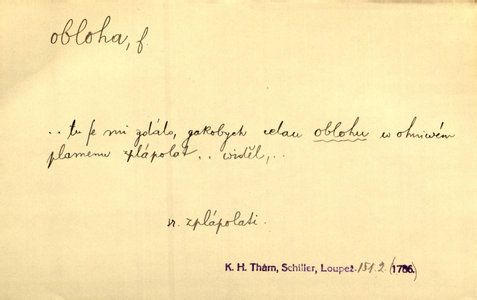 obloha, f.
.. tu se mi zdálo, gakobych celau oblohu w ohniwém
plamenu zplápolat .. widěl, ..
v. zplápolati.
K. H. Thám, Schiller, Loupež. 151.2. (1786.)